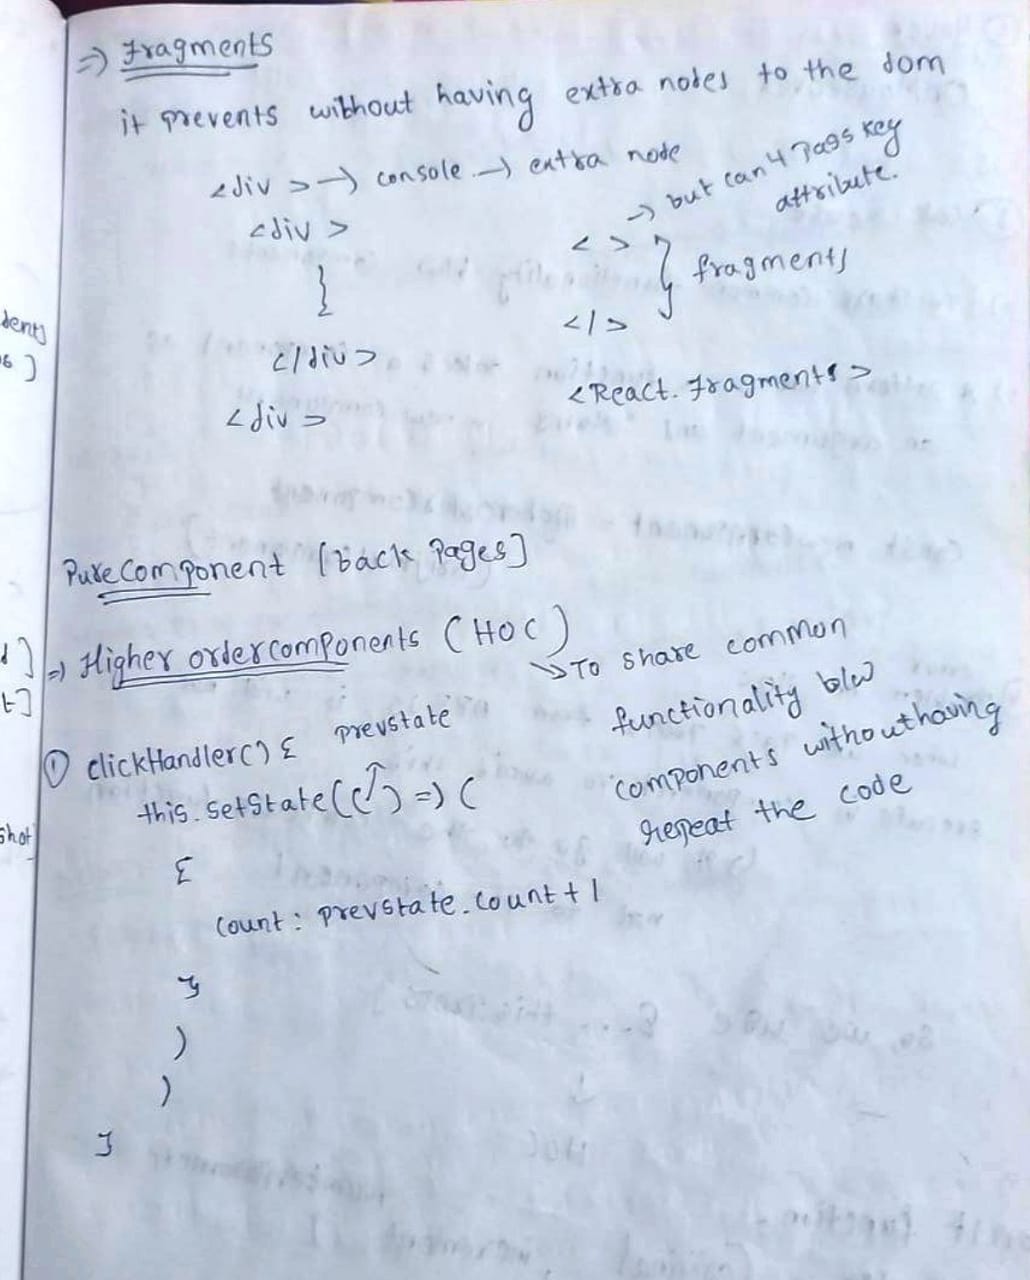 => Fragments
it prevents without having extra nodes to the dom
<div> -> console -> extra node
-> but can't pass key
attribute.
<div>
< >
} fragments
}
</>
</div>
<React.Fragments>
<div>
dents
PureComponent [back Pages]
=> Higher order components (HOC)
-> To share common
functionality b/w
components without having
repeat the code
① clickHandler() {
prevstate
this.setState(( ) => (
{
count: prevstate.count + 1
}
)
)
}
shot